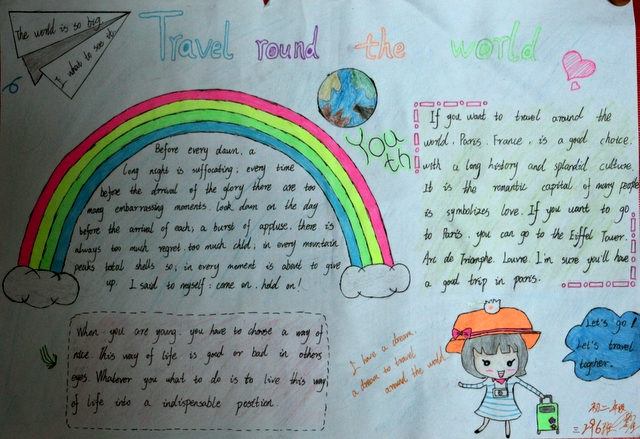 The world is so big.
I what to see it.
Travel round the world
You
th
Before every dawn, a
long night is suffocating; every time
before the arrival of the glory there are too
many embarrassing moments look down on the day
before the arrival of each, a burst of appluse, there is
always too much regret too much child; in every mountain
peaks total shells so; in every moment is about to give
up. I said to myself: come on, hold on!
If you want to travel around the
world, Paris, France, is a good choice.
with a long history and splendid culture.
It is the romantic capital of many people
is symbolizes love. If you want to go
to Paris, you can go to the Eiffel Tower.
Arc de Triomphe. Louvre. I'm sure you'll have
a good trip in paris.
When you are young, you have to choose a way of
nice. this way of life is good or bad in others
eyes. Whatever you what to do is to live this way
of life into a indispensable position.
I have a dream.
a dream to travel
around the world.
Let's go!
Let's travel
togther.
初二级